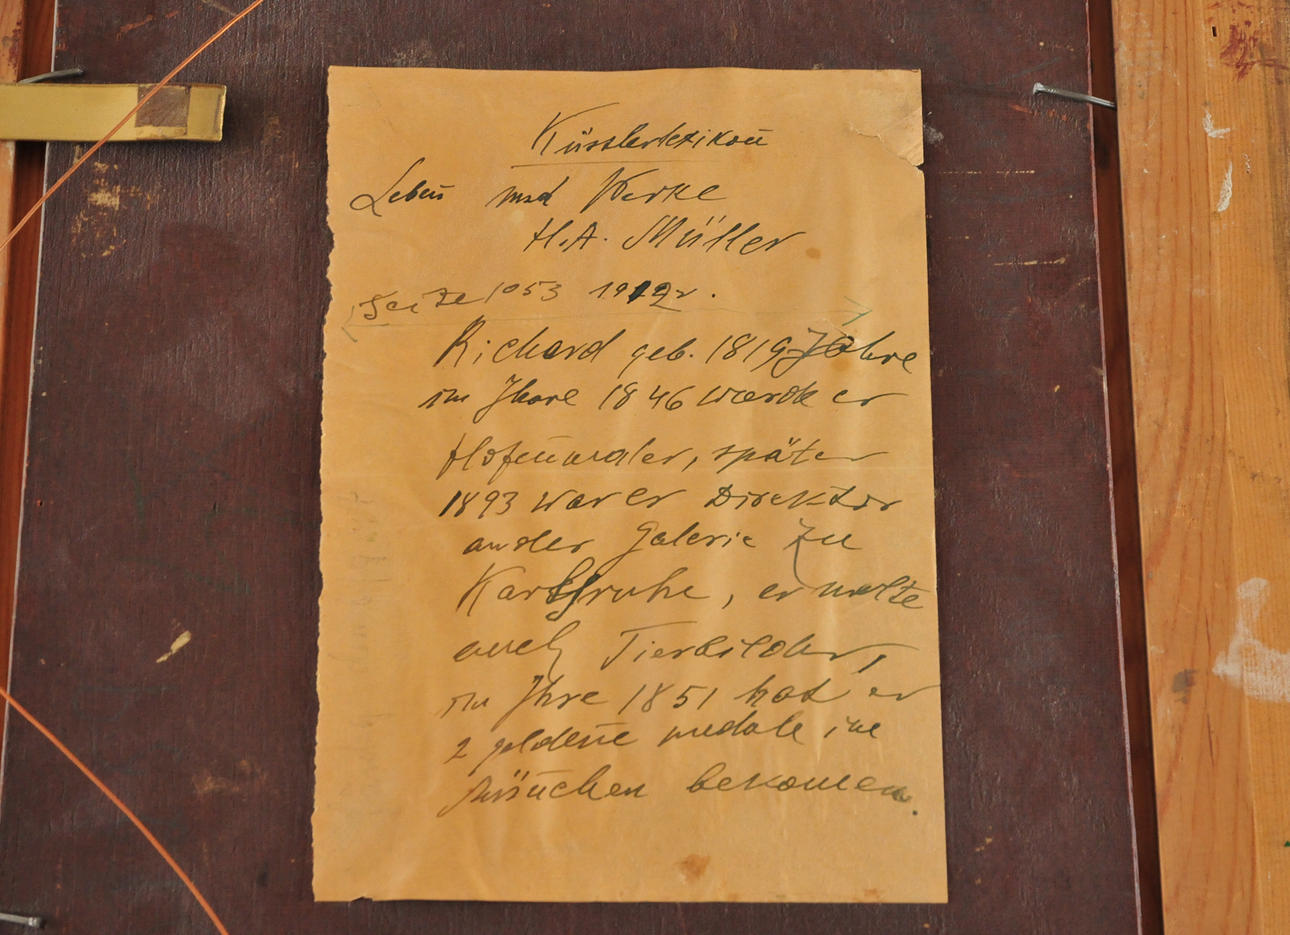 Küsslerlexikon
Leben und Werke
H.A. Müller
Seite 1053 1912r.
Richard geb. 1819 Jahre
im Jhare 1846 warde er
Hofenmaler, später
1893 war er Direktor
an der Galerie zu
Karlsruhe, er malte
auch Tierbilder,
im Jhre 1851 hat er
2 goldene medale ine
München bekomen.